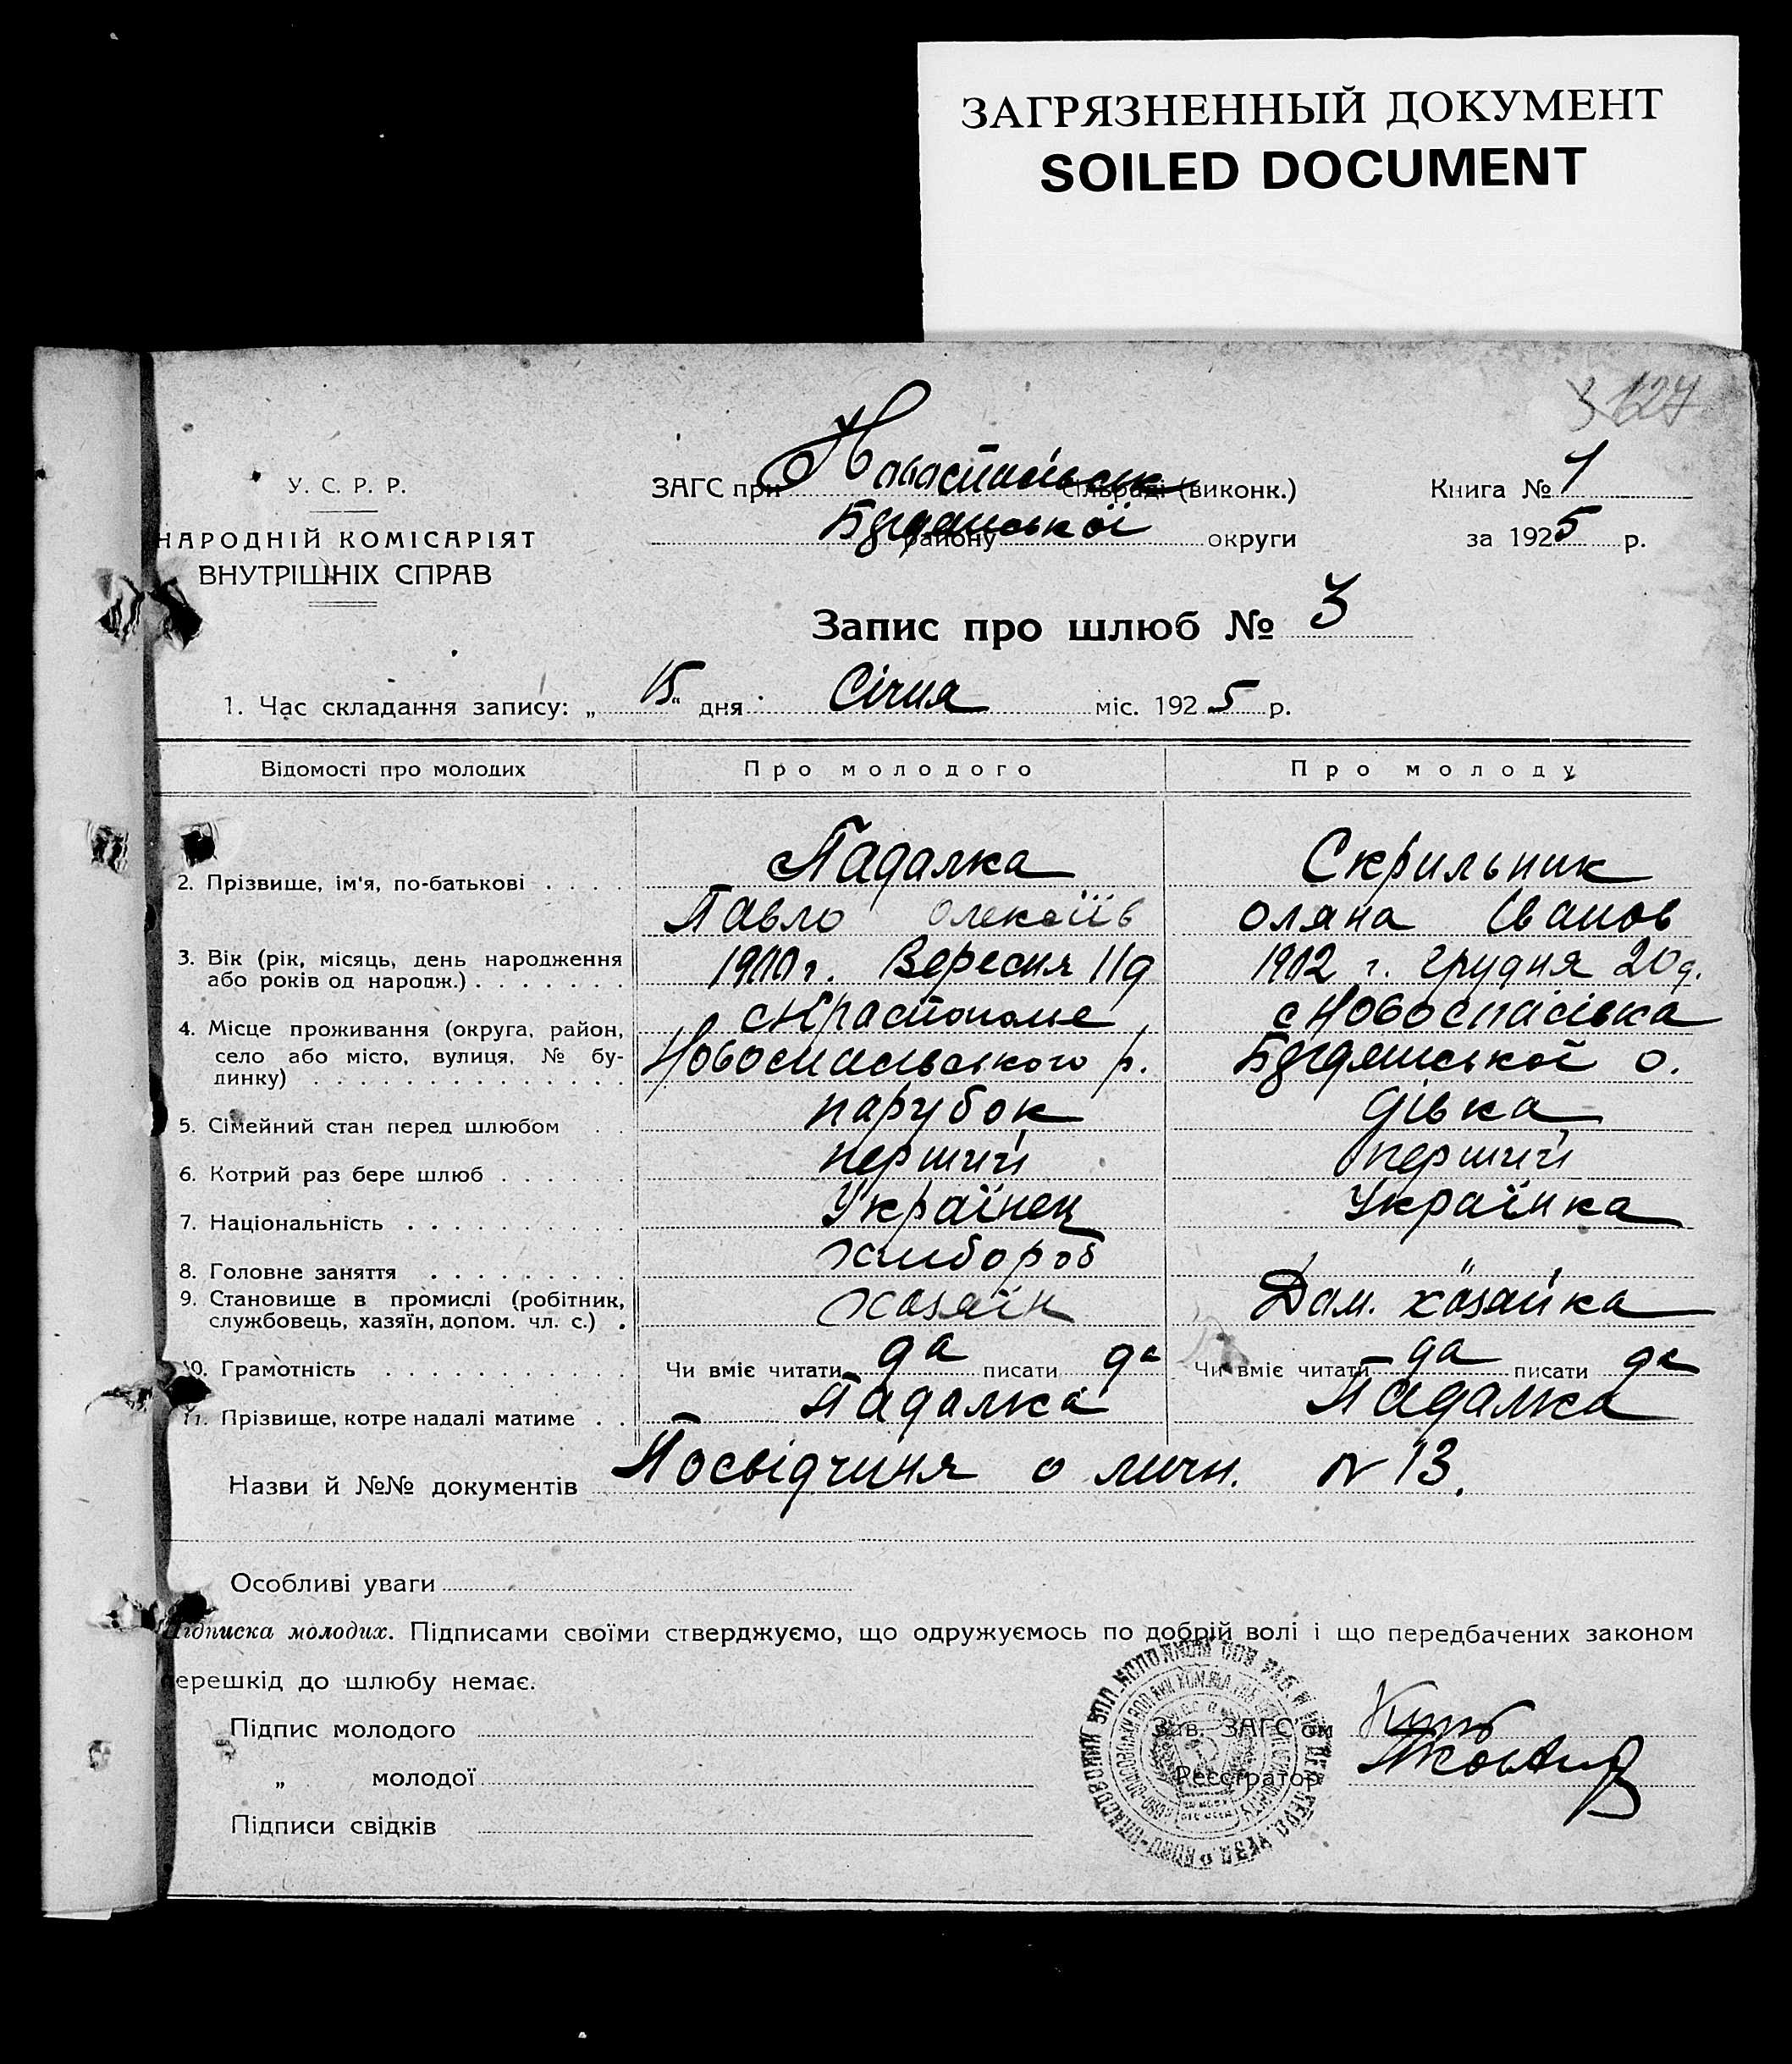 ЗАГРЯЗНЕННЫЙ ДОКУМЕНТ
SOILED DOCUMENT
3 127
У. С. Р. Р.
НАРОДНІЙ КОМІСАРІЯТ
ВНУТРІШНІХ СПРАВ
ЗАГС при Новоспасівськ сільраді (виконк.)
Бердянської району округи
Книга № 1
за 1925 р.
Запис про шлюб № 3
1. Час складання запису: „ 15 " дня Січня міс. 1925 р.
Відомості про молодих Про молодого Про молоду
2. Прізвище, ім'я, по-батькові . . . . Падалка Скрильник
Павло Олексіїв Оляна Іванов
3. Вік (рік, місяць, день народження або років од народж.) . . . . . . . 1900 г. Вересня 11 д 1902 г. Грудня 20 д.
4. Місце проживання (округа, район, село або місто, вулиця, № будинку) . . . . . . . . . . . . . . с Новоспасівка
Новоспасівського р. Бердянської о.
5. Сімейний стан перед шлюбом . . парубок дівка
6. Котрий раз бере шлюб . . . . . . перший перший
7. Національність . . . . . . . . . . Українец Українка
8. Головне заняття . . . . . . . . . хлібороб "
9. Становище в промислі (робітник, службовець, хазяїн, допом. чл. с.) . хазяїн Дом. хазяйка
10. Грамотність . . . . . . . . . . . Чи вміє читати да писати да Чи вміє читати да писати да
11. Прізвище, котре надалі матиме . . Падалка Падалка
Назви й №№ документів Посвідчиня о личн. № 13.
Особливі уваги
Підписка молодих. Підписами своїми стверджуємо, що одружуємось по добрій волі і що передбачених законом
перешкід до шлюбу немає.
Підпис молодого Зав. ЗАГС'ом
„ молодої Реєстратор
Підписи свідків